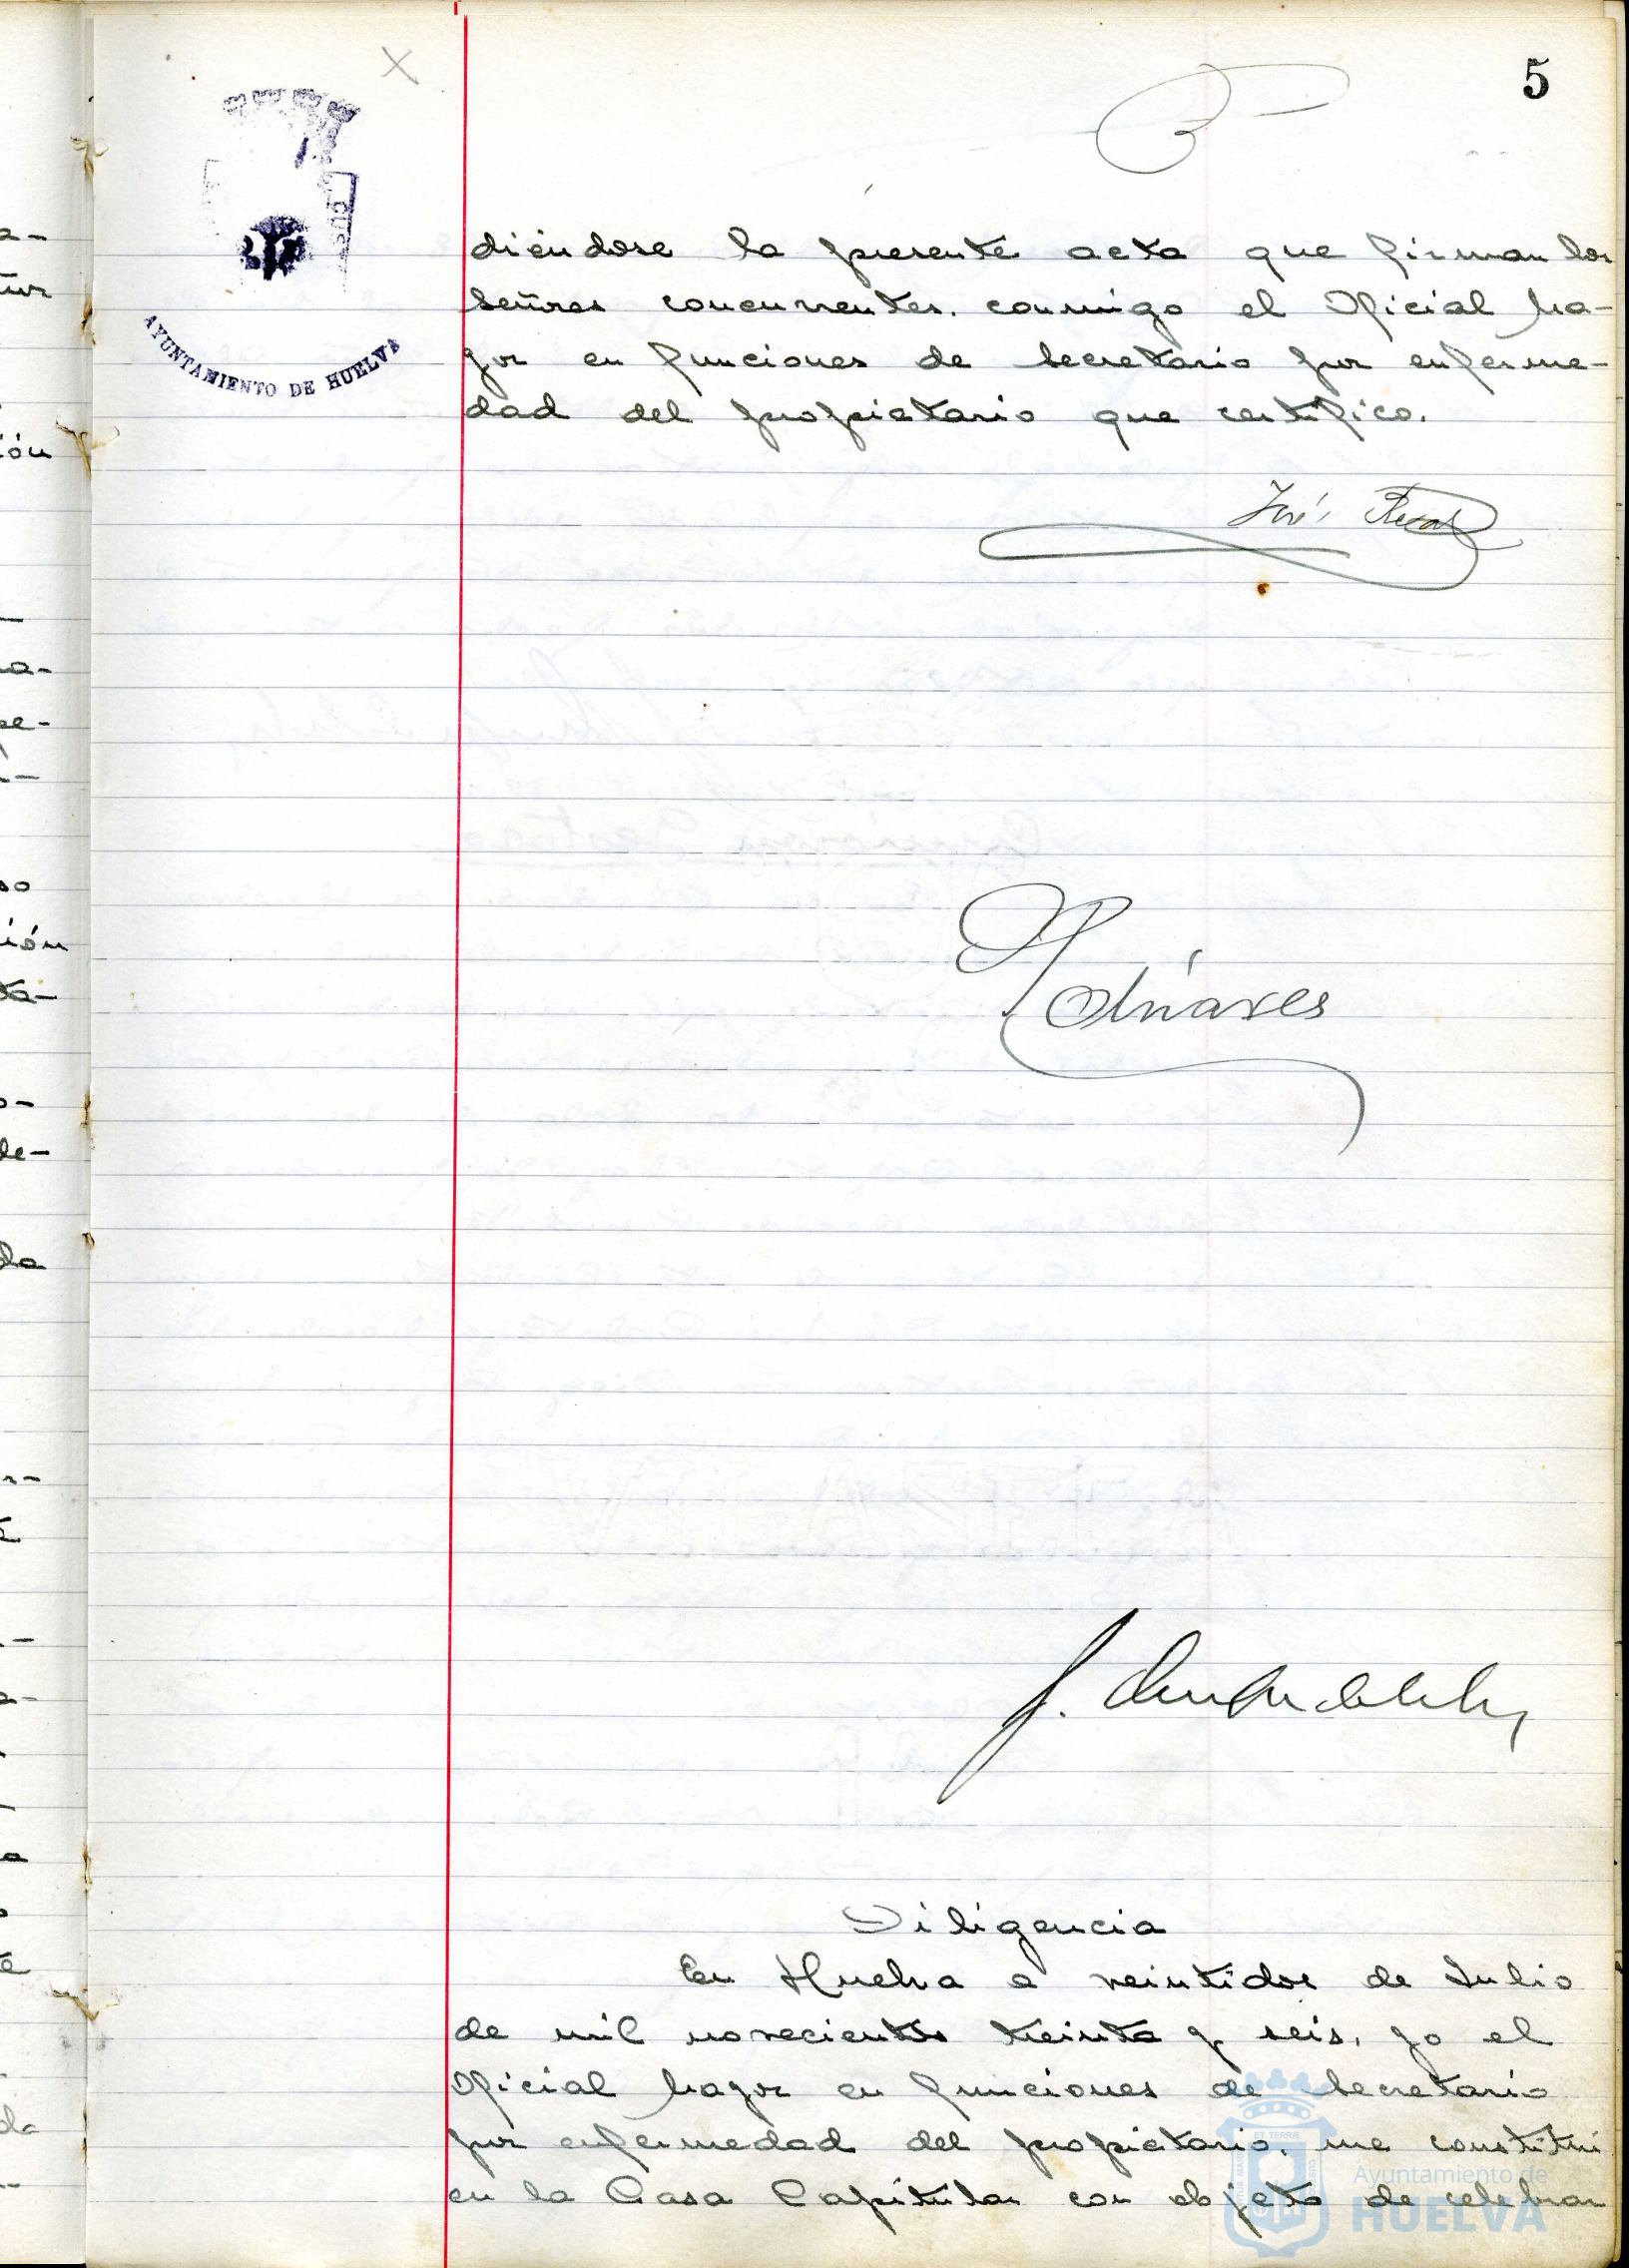 5
AYUNTAMIENTO DE HUELVA
diéndose la presente acta que firman los
señores concurrentes, conmigo el Oficial Ma-
yor en funciones de Secretario por enferme-
dad del propietario que certifico.
José
Olivares
Diligencia
En Huelva a veintidos de Julio
de mil novecientos treinta y seis, yo el
Oficial Mayor en funciones de Secretario
por enfermedad del propietario, me constituí
en la Casa Capitular con objeto de celebrar
Ayuntamiento de
HUELVA